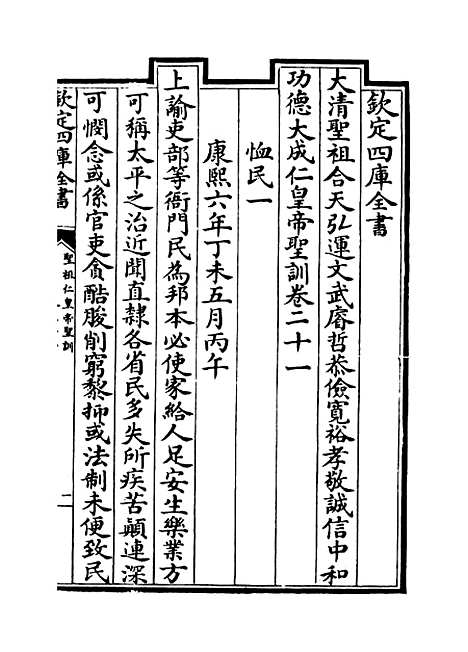 欽定四庫全書
大清聖祖合天弘運文武睿哲恭儉寛裕孝敬誠信中和
功德大成仁皇帝聖訓卷二十一
恤民一
康熙六年丁未五月丙午
上諭吏部等衙門民為邦本必使家給人足安生樂業方
可稱太平之治近聞直隸各省民多失所疾苦顛連深
可憫念或係官吏貪酷朘削窮黎抑或法制未便致民
欽定四庫全書
聖祖仁皇帝聖訓